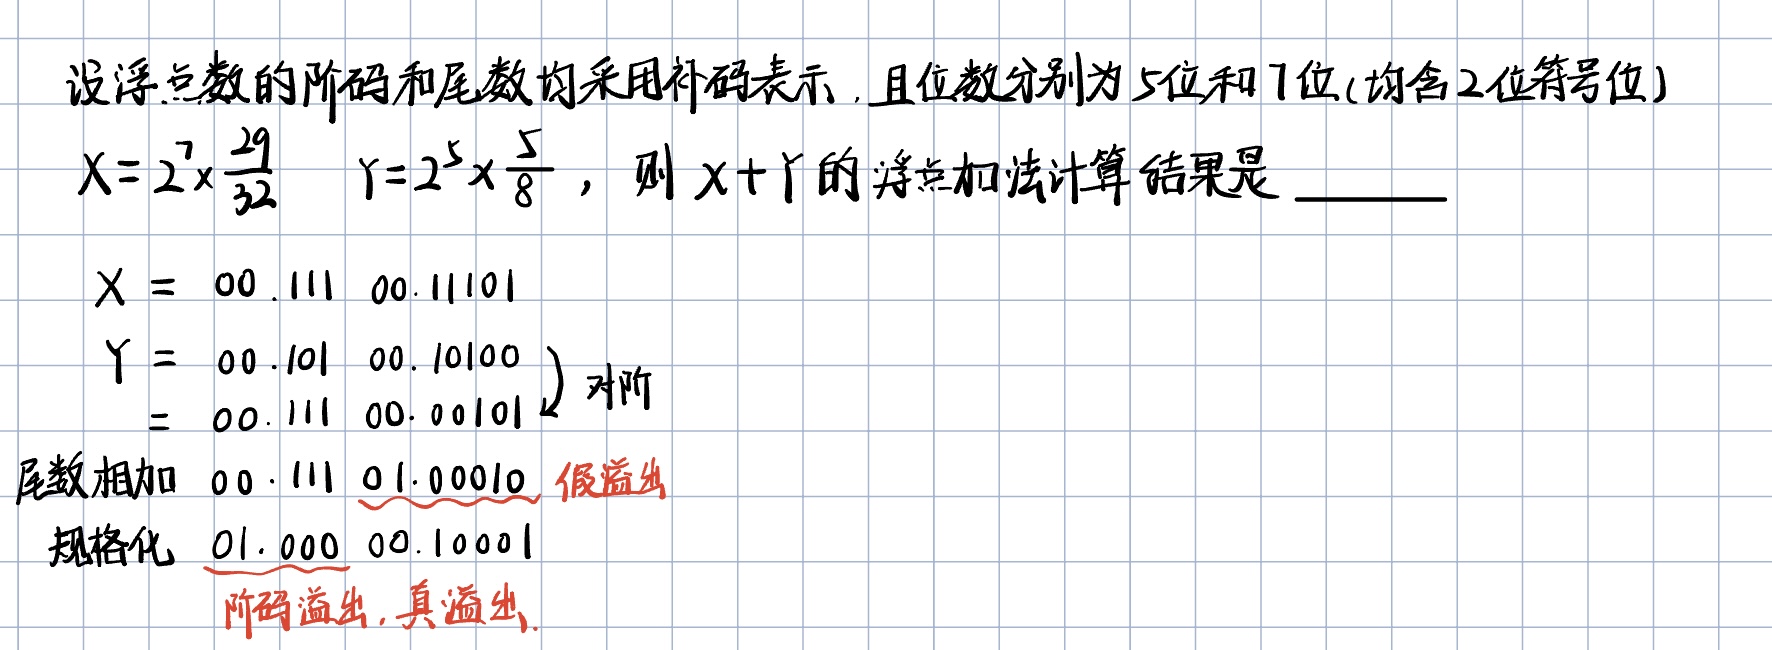 设浮点数的阶码和尾数均采用补码表示，且位数分别为5位和7位(均含2位符号位)
X=2^7×29/32 Y=2^5×5/8，则X+Y的浮点加法计算结果是______
X = 00.111 00.11101
Y = 00.101 00.10100
= 00.111 00.00101 对阶
尾数相加 00.111 01.00010 假溢出
规格化 01.000 00.10001
阶码溢出，真溢出.